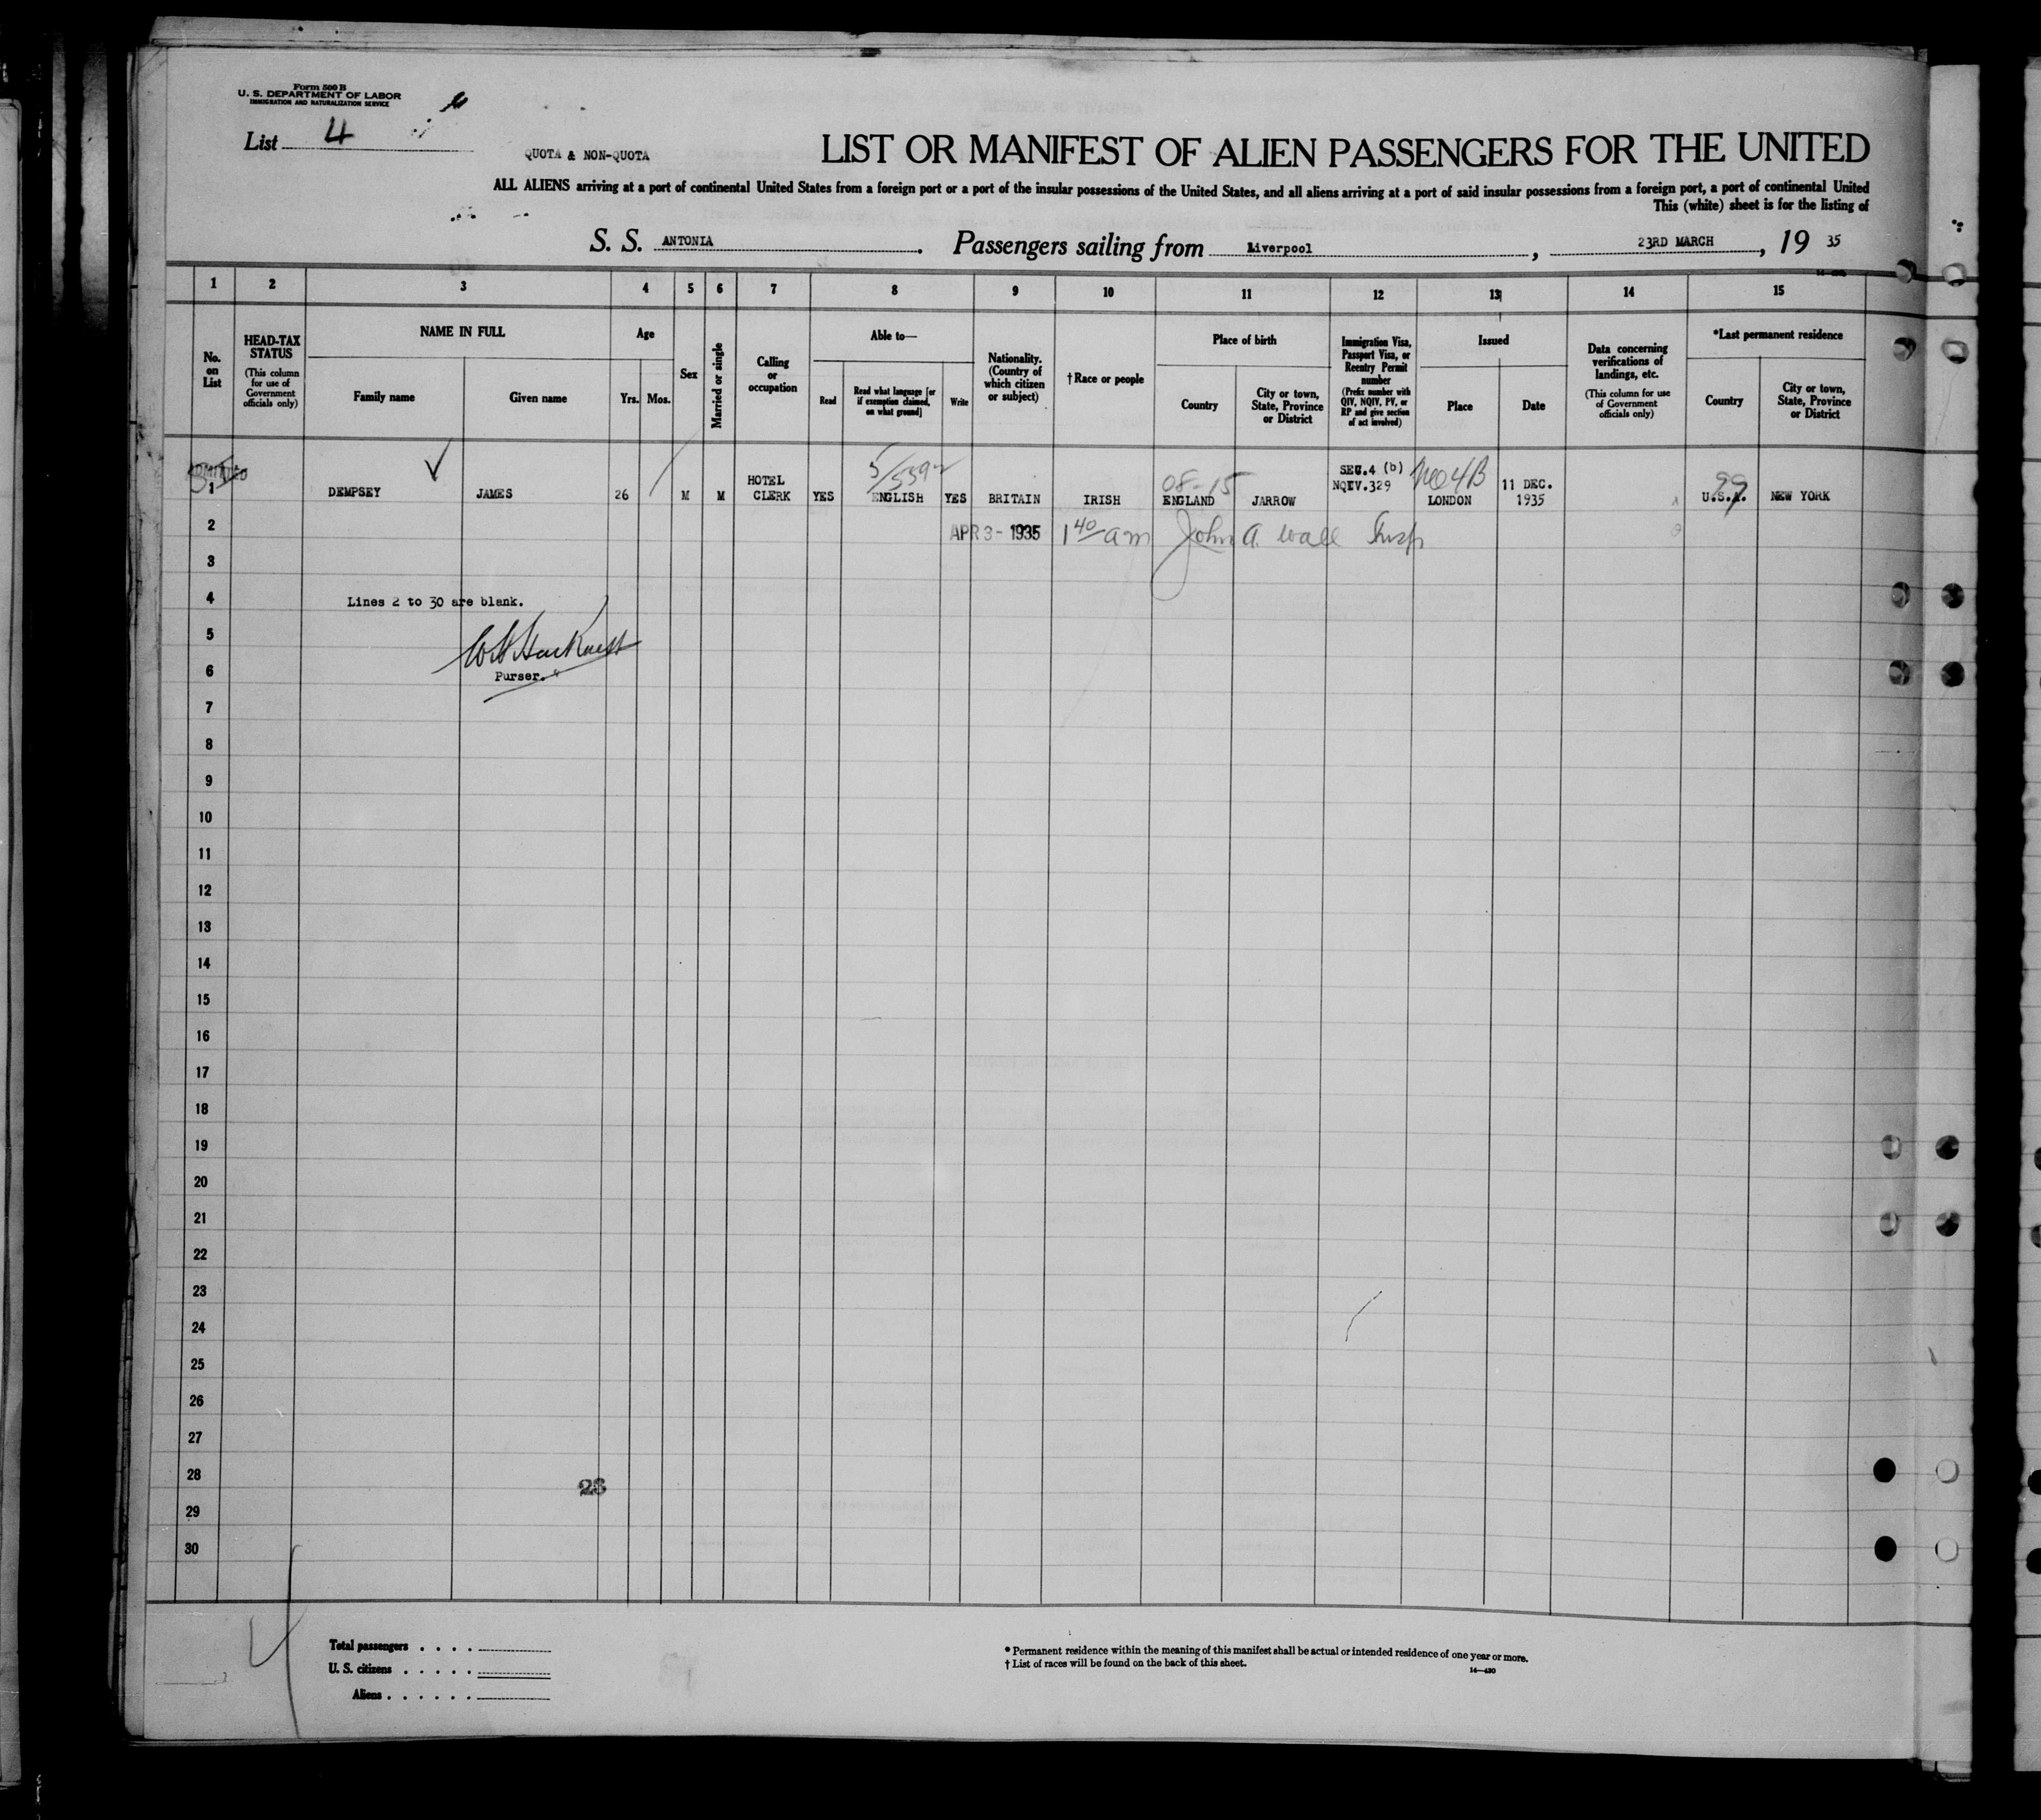 Form 500 B
U. S. DEPARTMENT OF LABOR
IMMIGRATION AND NATURALIZATION SERVICE
List 4
QUOTA & NON-QUOTA
LIST OR MANIFEST OF ALIEN PASSENGERS FOR THE UNITED
ALL ALIENS arriving at a port of continental United States from a foreign port or a port of the insular possessions of the United States, and all aliens arriving at a port of said insular possessions from a foreign port, a port of continental United
This (white) sheet is for the listing of
S. S. ANTONIA. Passengers sailing from Liverpool, 23RD MARCH, 19 35
1 2 3 4 5 6 7 8 9 10 11 12 13 14 15
No. on List
HEAD-TAX STATUS (This column for use of Government officials only)
NAME IN FULL
Family name
Given name
Age
Yrs. Mos.
Sex
Married or single
Calling or occupation
Able to—
Read
Read what language [or if exemption claimed, on what ground]
Write
Nationality. (Country of which citizen or subject)
†Race or people
Place of birth
Country
City or town, State, Province or District
Immigration Visa, Passport Visa, or Reentry Permit number (Prefix number with QIV, NQIV, PV, or RP and give section of act involved)
Issued
Place
Date
Data concerning verifications of landings, etc. (This column for use of Government officials only)
*Last permanent residence
Country
City or town, State, Province or District
ADMITTED
1 DEMPSEY JAMES 26 M M HOTEL CLERK YES ENGLISH YES BRITAIN IRISH ENGLAND JARROW SEC.4 (b) NQIV.329 LONDON 11 DEC. 1935 U.S.A. NEW YORK
08-15
NQ4B
99
2 APR 3 - 1935 1 40 am John A. Wall Insp
3
4 Lines 2 to 30 are blank.
5
6 Purser.
7
8
9
10
11
12
13
14
15
16
17
18
19
20
21
22
23
24
25
26
27
28
29
30
Total passengers . . . .
U. S. citizens . . . . .
Aliens . . . . . .
* Permanent residence within the meaning of this manifest shall be actual or intended residence of one year or more.
† List of races will be found on the back of this sheet.
14—430